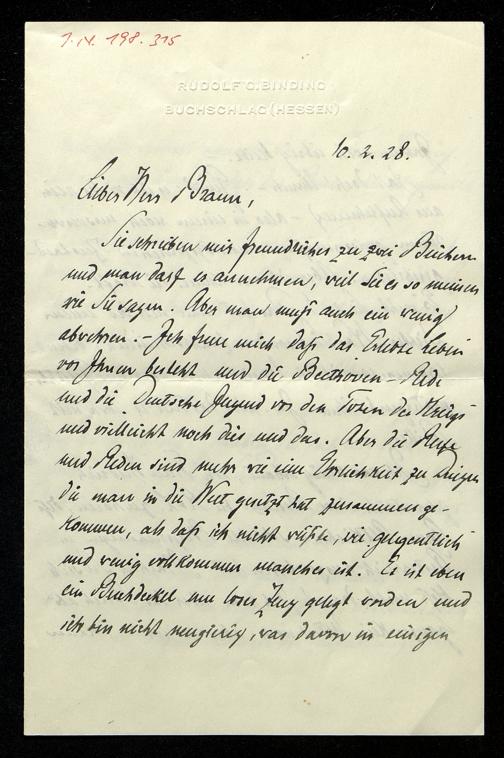 I.N. 198.315
RUDOLF G. BINDING
BUCHSCHLAG (HESSEN)
10. 2. 28.
Lieber Herr Braun,
Sie schreiben mir freundliches zu zwei Büchern
und man darf es annehmen, weil Sie es so meinen
wie Sie sagen. Aber man muß auch ein wenig
abwehren. – Ich freue mich daß das Erlebte Leben
vor Ihnen besteht und die Beethoven-Rede
und die Deutsche Jugend vor den Toten des Kriegs
und vielleicht noch dies und das. Aber die
und Reden sind mehr wie eine Ehrlichkeit zu Dingen
die man in die Welt gesetzt hat zusammenge-
kommen, als daß ich nicht wüßte, wie gelegentlich
und wenig vollkommen manches ist. Es ist eben
ein Buchdeckel um loses Zeug gelegt worden und
ich bin nicht neugierig, was davon in einigen